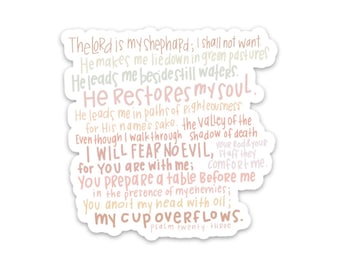 The Lord is my shephard; I shall not want.
He makes me lie down in green pastures
He leads me beside still waters.
He restores my soul.
He leads me in paths of righteousness
for His name's saka. the valley of the
Even though I walk through shadow of death
I WILL FEAR NO EVIL, your Rod & your
for you are with me; Staff they comfort me
You prepare a table before me
in the presence of my enemies;
you anoit my head with oil;
my cup overflows.
PSALM TWENTY THREE